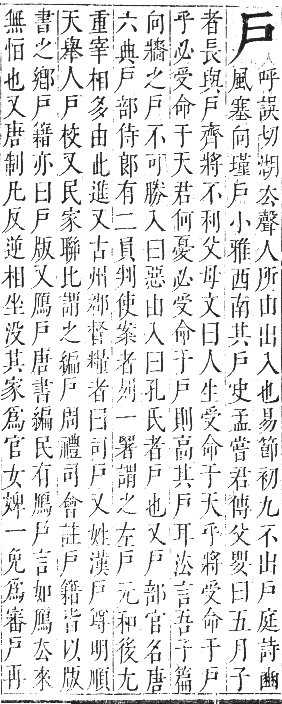 戶呼誤切湖去聲人所由出入也易節初九不出戶庭詩豳
風塞向墐戶小雅西南其戶史孟嘗君傳父嬰曰五月子
者長與戶齊將不利父母文曰人生受命于天乎將受命于戶
乎必受命于天君何憂必受命于戶則高其戶耳法言吾子篇
向牆之戶不可勝入曰惡由入曰孔氏者戶也又戶部官名唐
六典戶部侍郎有二員判使案者別一署謂之左戶元和後尤
重宰相多由此進又古州郡督糧者曰司戶又姓漢戶尊明順
天舉人戶校又民家聯比謂之編戶周禮司會註戶籍皆以版
書之鄕戶籍亦曰戶版又鴈戶唐書編民有鴈戶言如鴈去來
無恒也又唐制凡反逆相坐没其家爲官女婢一免爲審戶再